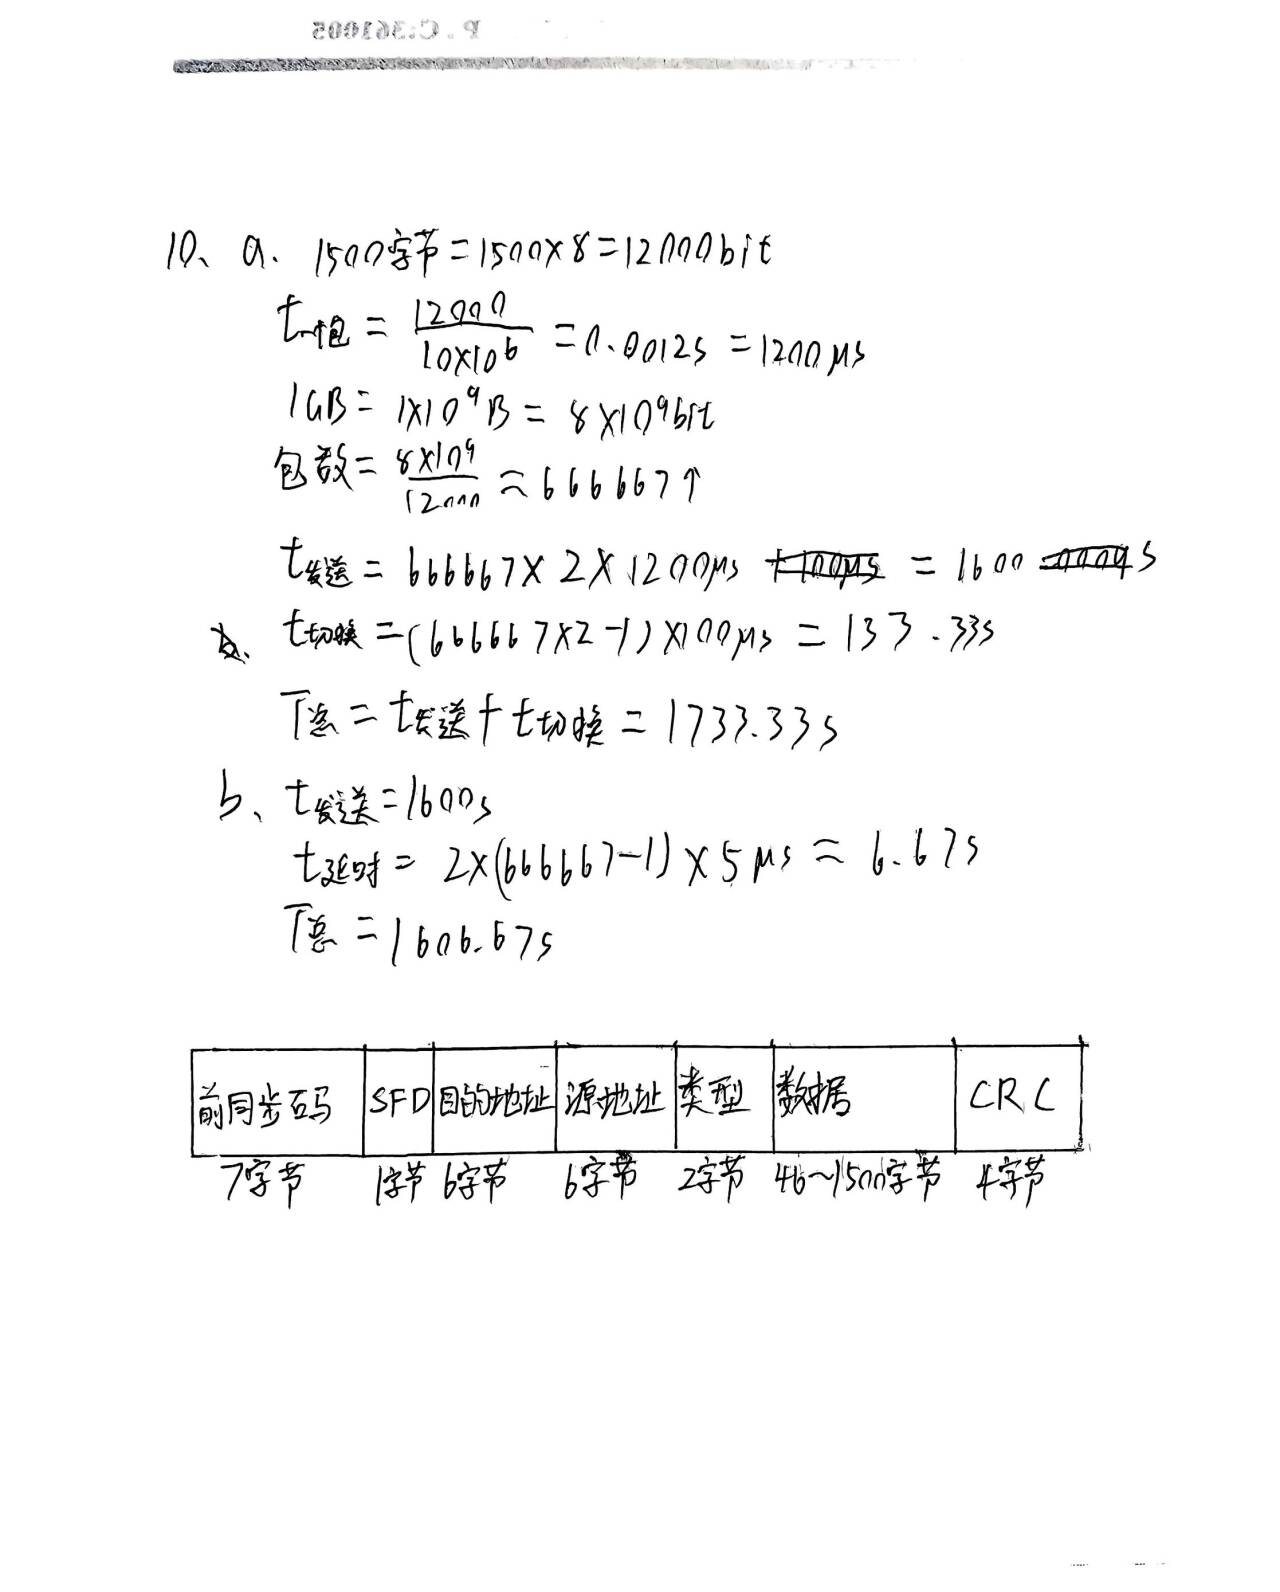 P.C:361005
10、a. 1500字节=1500×8=12000bit
t一包 = 12000/10×10⁶ = 0.0012s = 1200μs
1GB = 1×10⁹B = 8×10⁹bit
包数 = 8×10⁹/12000 ≈ 666667个
t发送 = 666667×2×1200μs = 1600 s
t切换 = (666667×2-1)×100μs = 133.33s
T总 = t发送+t切换 = 1733.33s
b、t发送=1600s
t延时 = 2×(666667-1)×5μs ≈ 6.67s
T总 = 1606.67s
前同步码 SFD 目的地址 源地址 类型 数据 CRC
7字节 1字节 6字节 6字节 2字节 46~1500字节 4字节